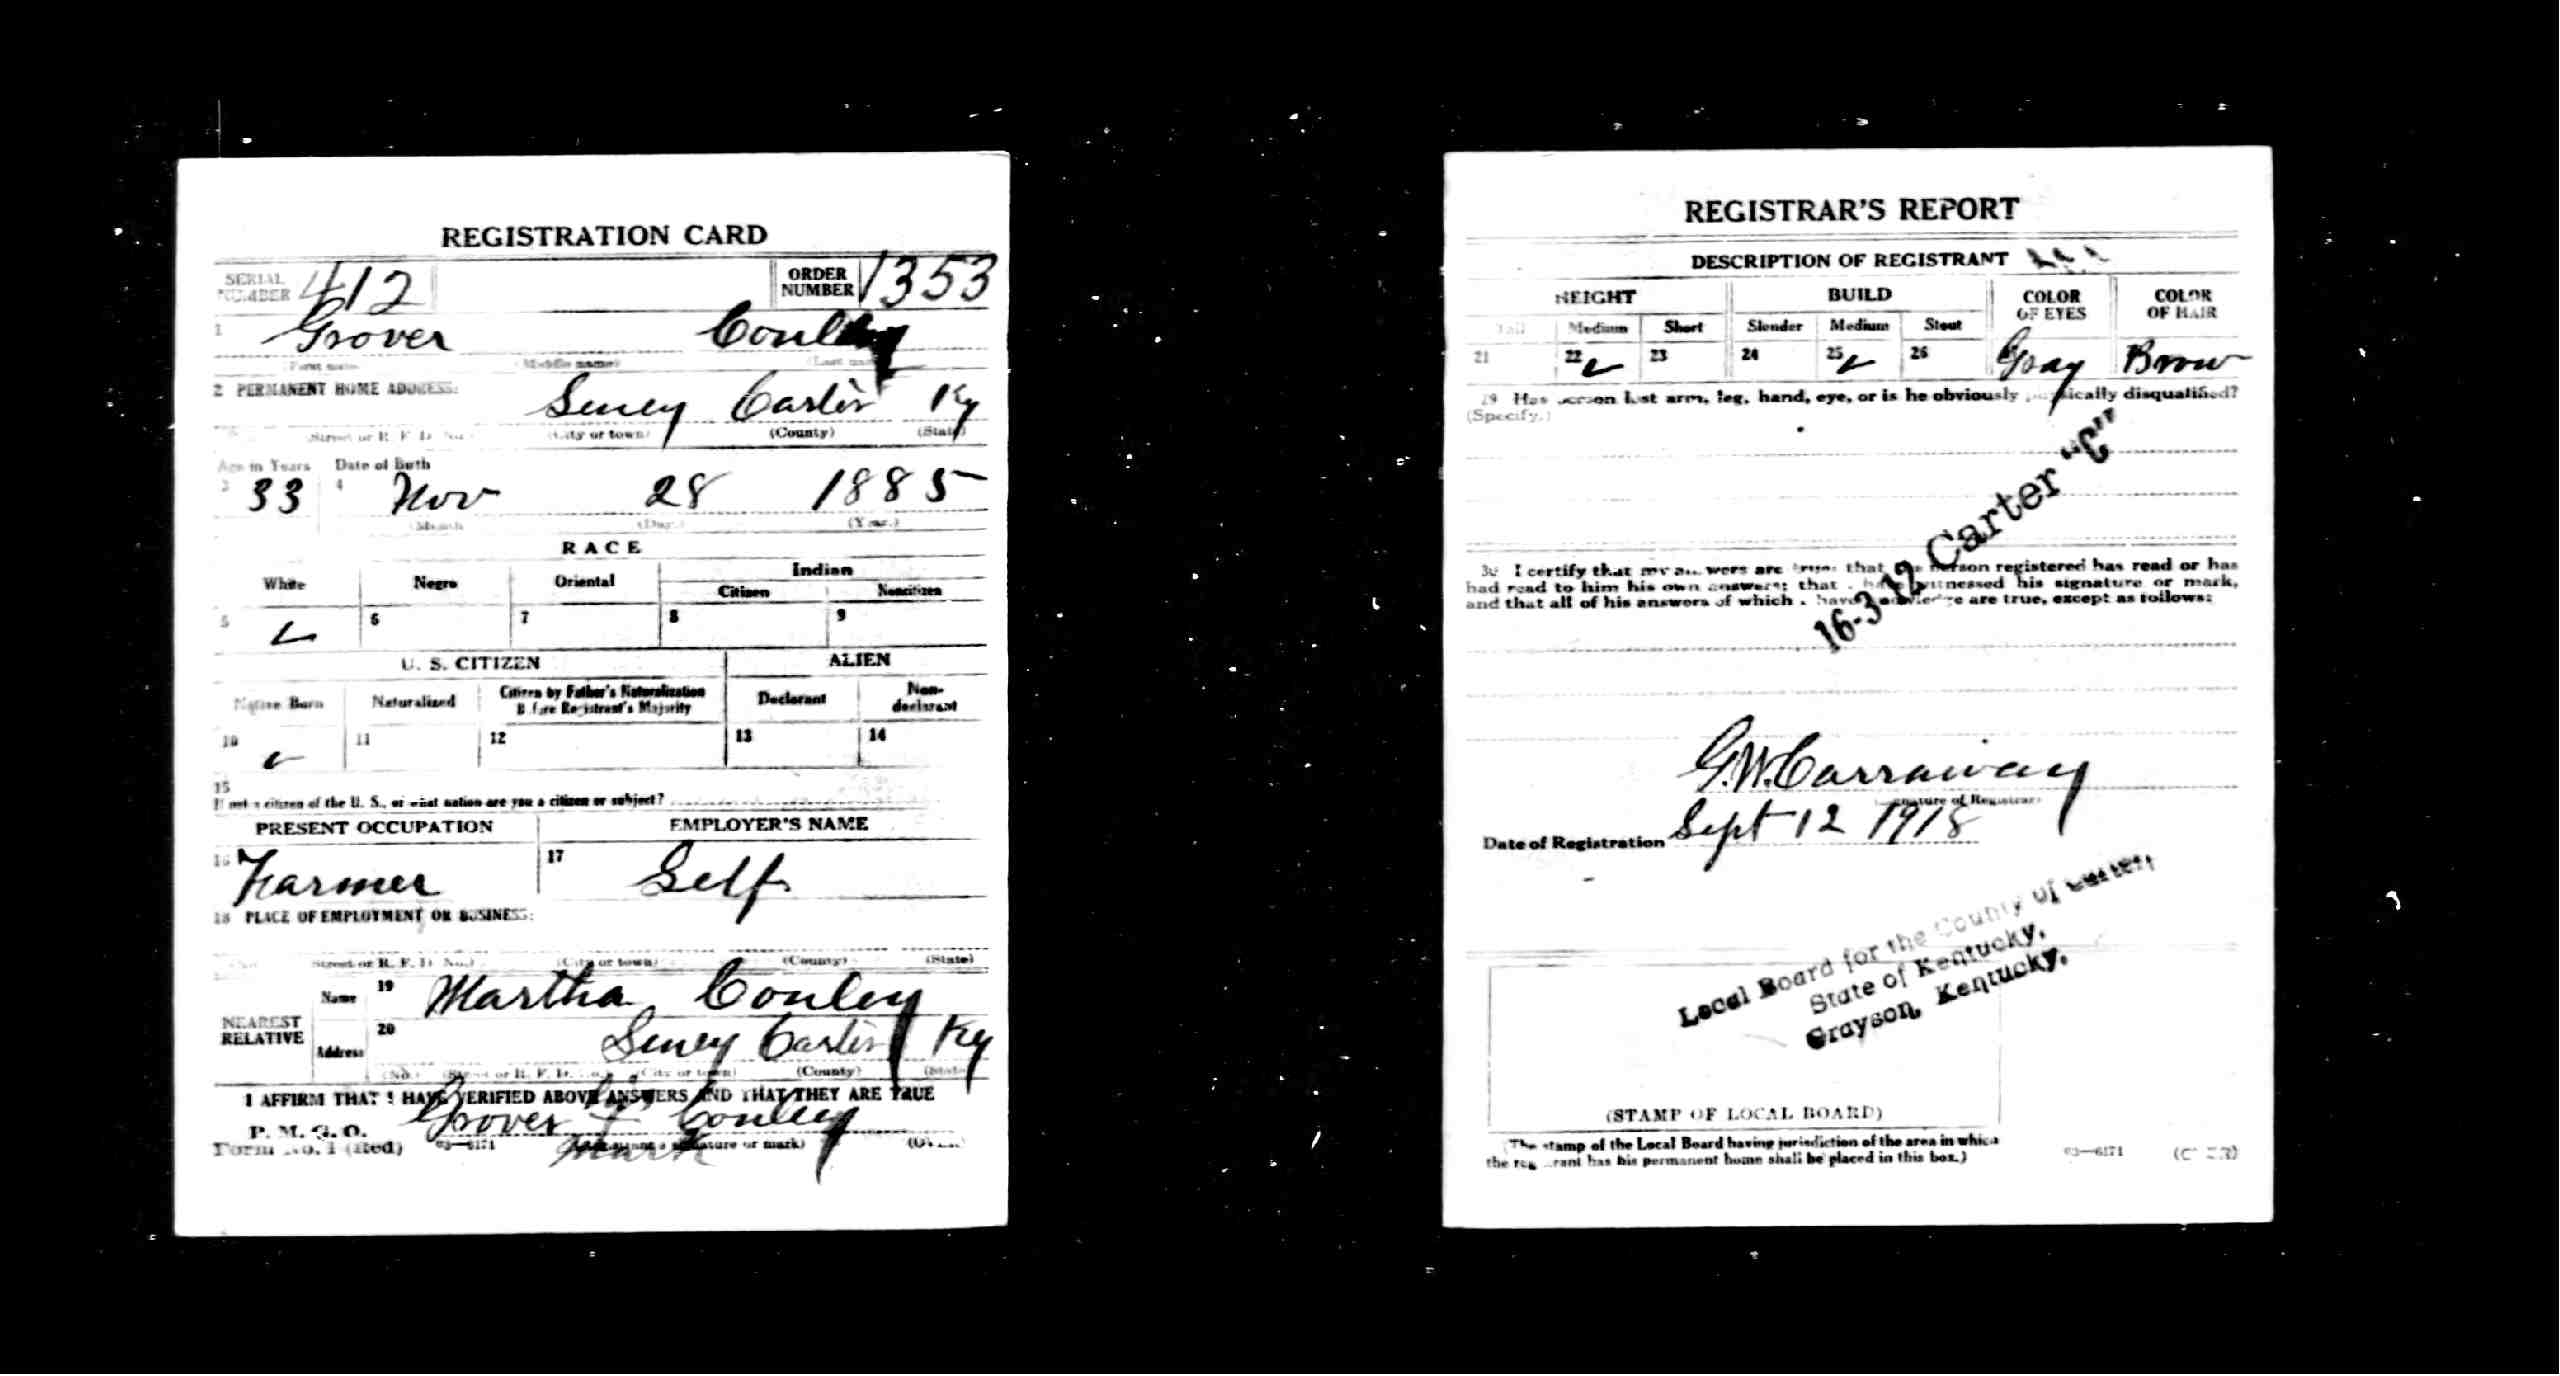 REGISTRATION CARD
SERIAL NUMBER 412 ORDER NUMBER 1353
1 Grover Conley
(First name) (Middle name) (Last name)
2 PERMANENT HOME ADDRESS:
Seney Carter Ky
(Street or R. F. D. No.) (City or town) (County) (State)
Age in Years Date of Birth
3 33 4 Nov 28 1885
(Month) (Day.) (Year.)
RACE
White Negro Oriental Indian
Citizen Noncitizen
5 6 7 8 9
U. S. CITIZEN ALIEN
Native Born Naturalized Citizen by Father's Naturalization Before Registrant's Majority Declarant Non-declarant
10 11 12 13 14
15
If not a citizen of the U. S., of what nation are you a citizen or subject?
PRESENT OCCUPATION EMPLOYER'S NAME
16 Farmer 17 Self
18 PLACE OF EMPLOYMENT OR BUSINESS:
(Street or R. F. D. No.) (City or town) (County) (State)
NEAREST RELATIVE Name 19 Martha Conley
Address 20 Seney Carter Ky
(No.) (Street or R. F. D. No.) (City or town) (County) (State)
I AFFIRM THAT I HAVE VERIFIED ABOVE ANSWERS AND THAT THEY ARE TRUE
P. M. G. O.
Form No. 1 (Red) 03—6171 Grover his x mark Conley
(Registrant's signature or mark) (OVER)
REGISTRAR'S REPORT
DESCRIPTION OF REGISTRANT
HEIGHT BUILD COLOR OF EYES COLOR OF HAIR
Tall Medium Short Slender Medium Stout
21 22 23 24 25 26 Gray Brow
29 Has person lost arm, leg, hand, eye, or is he obviously physically disqualified?
(Specify.)
16-3-12 Carter "C"
30 I certify that my answers are true; that the person registered has read or has
had read to him his own answers; that I have witnessed his signature or mark,
and that all of his answers of which I have knowledge are true, except as follows:
G.W. Carraway
(Signature of Registrar)
Date of Registration Sept 12 1918
Local Board for the County of Carter,
State of Kentucky,
Grayson, Kentucky.
(STAMP OF LOCAL BOARD)
(The stamp of the Local Board having jurisdiction of the area in which
the registrant has his permanent home shall be placed in this box.)
03—6171 (OVER)